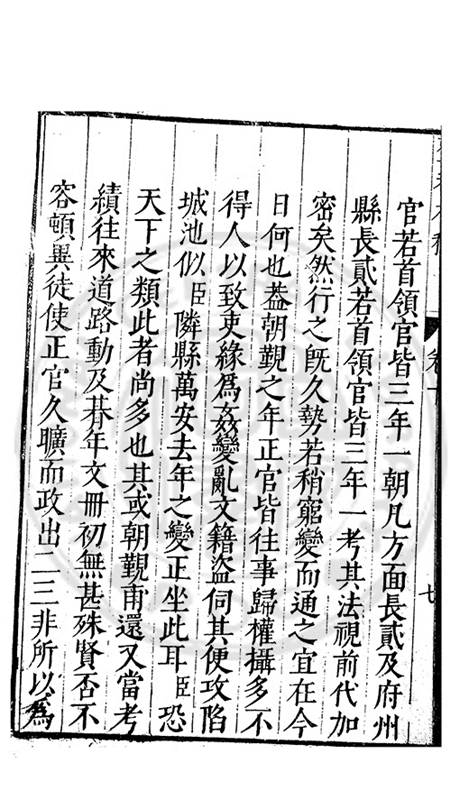 官若首領官皆三年一朝凡方面長貳及府州
縣長貳若首領官皆三年一考其法視前代加
密矣然行之既久勢若稍窮變而通之宜在今
日何也葢朝覲之年正官皆往事歸權攝多不
得人以致吏緣為姦變亂文籍盜伺其便攻陷
城池似臣隣縣萬安去年之變正坐此耳臣恐
天下之類此者尚多也其或朝覲甫還又當考
績往來道路動及朞年文冊初無甚殊賢否不
容頓異徒使正官久曠而政出二三非所以為
卷十
七